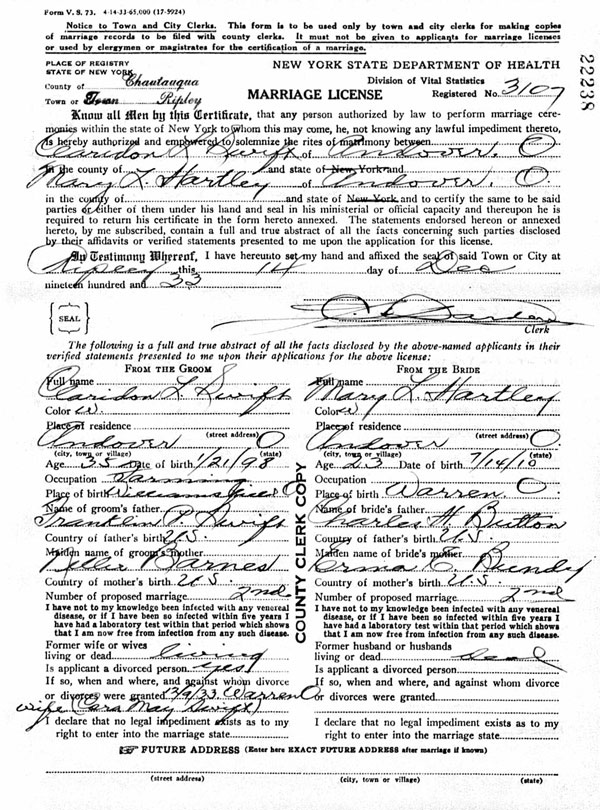 Form V. S. 73. 4-14-33-65,000 (17-5924)
Notice to Town and City Clerks. This form is to be used only by town and city clerks for making copies
of marriage records to be filed with county clerks. It must not be given to applicants for marriage licenses
or used by clergymen or magistrates for the certification of a marriage.
PLACE OF REGISTRY
STATE OF NEW YORK
NEW YORK STATE DEPARTMENT OF HEALTH
County of Chautauqua
Division of Vital Statistics
Town or Ripley
MARRIAGE LICENSE
Registered No. 3107
22238
Know all Men by this Certificate, that any person authorized by law to perform marriage cere-
monies within the state of New York to whom this may come, he, not knowing any lawful impediment thereto,
is hereby authorized and empowered to solemnize the rites of matrimony between
Claridon L. Swift of Andover. O
in the county of and state of New York and
Mary L. Hartley of Andover. O
in the county of and state of New York and to certify the same to be said
parties or either of them under his hand and seal in his ministerial or official capacity and thereupon he is
required to return his certificate in the form hereto annexed. The statements endorsed hereon or annexed
hereto, by me subscribed, contain a full and true abstract of all the facts concerning such parties disclosed
by their affidavits or verified statements presented to me upon the application for this license.
In Testimony Whereof, I have hereunto set my hand and affixed the seal of said Town or City at
Ripley this 14 day of Dec
nineteen hundred and 33
SEAL
Clerk
The following is a full and true abstract of all the facts disclosed by the above-named applicants in their
verified statements presented to me upon their applications for the above license:
FROM THE GROOM
Full name
Claridon L. Swift
Color W.
Place of residence
(street address)
Andover O
(city, town or village) (state)
Age 35 Date of birth 1/21/98
Occupation Farming
Place of birth Williamsfield O
Name of groom's father
Franklin P. Swift
Country of father's birth U.S.
Maiden name of groom's mother
Barnes
Country of mother's birth U.S
Number of proposed marriage 2nd
I have not to my knowledge been infected with any venereal
disease, or if I have been so infected within five years I
have had a laboratory test within that period which shows
that I am now free from infection from any such disease.
Former wife or wives
living or dead living
Is applicant a divorced person yes
If so, when and where, and against whom divorce
or divorces were granted 3/9/33 Warren O
wife (Cora May Swift)
I declare that no legal impediment exists as to my
right to enter into the marriage state
COUNTY CLERK COPY
FROM THE BRIDE
Full name
Mary L. Hartley
Color W
Place of residence
(street address)
Andover O.
(city, town or village) (state)
Age 23 Date of birth 7/14/10
Occupation
Place of birth Warren. O
Name of bride's father
Charles H. Button
Country of father's birth U.S.
Maiden name of bride's mother
Erma E. Bundy
Country of mother's birth U.S.
Number of proposed marriage 2nd
I have not to my knowledge been infected with any venereal
disease, or if I have been so infected within five years I
have had a laboratory test within that period which shows
that I am now free from infection from any such disease.
Former husband or husbands
living or dead dead
Is applicant a divorced person
If so, when and where, and against whom divorce
or divorces were granted
I declare that no legal impediment exists as to my
right to enter into the marriage state
FUTURE ADDRESS (Enter here EXACT FUTURE ADDRESS after marriage if known)
(street address) (city, town or village) (state)